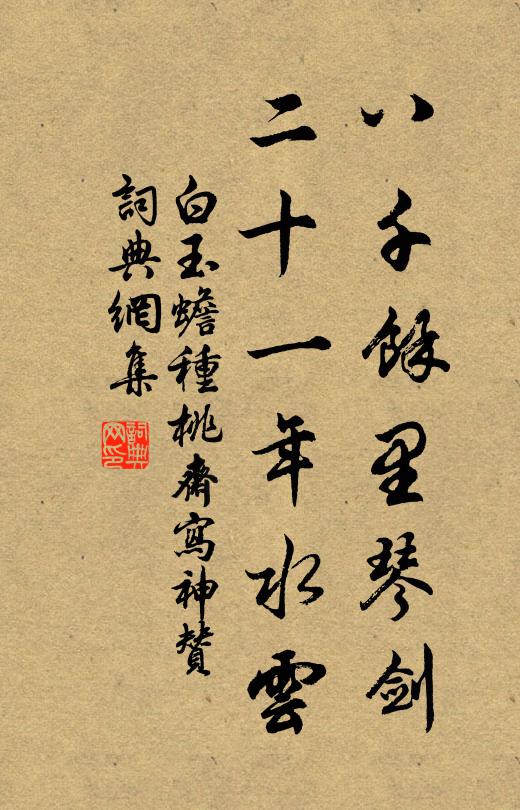 八千餘里琴劍
二十一年水雲
白玉蟾種桃齋寫神贊
詞典網集
詞典网印